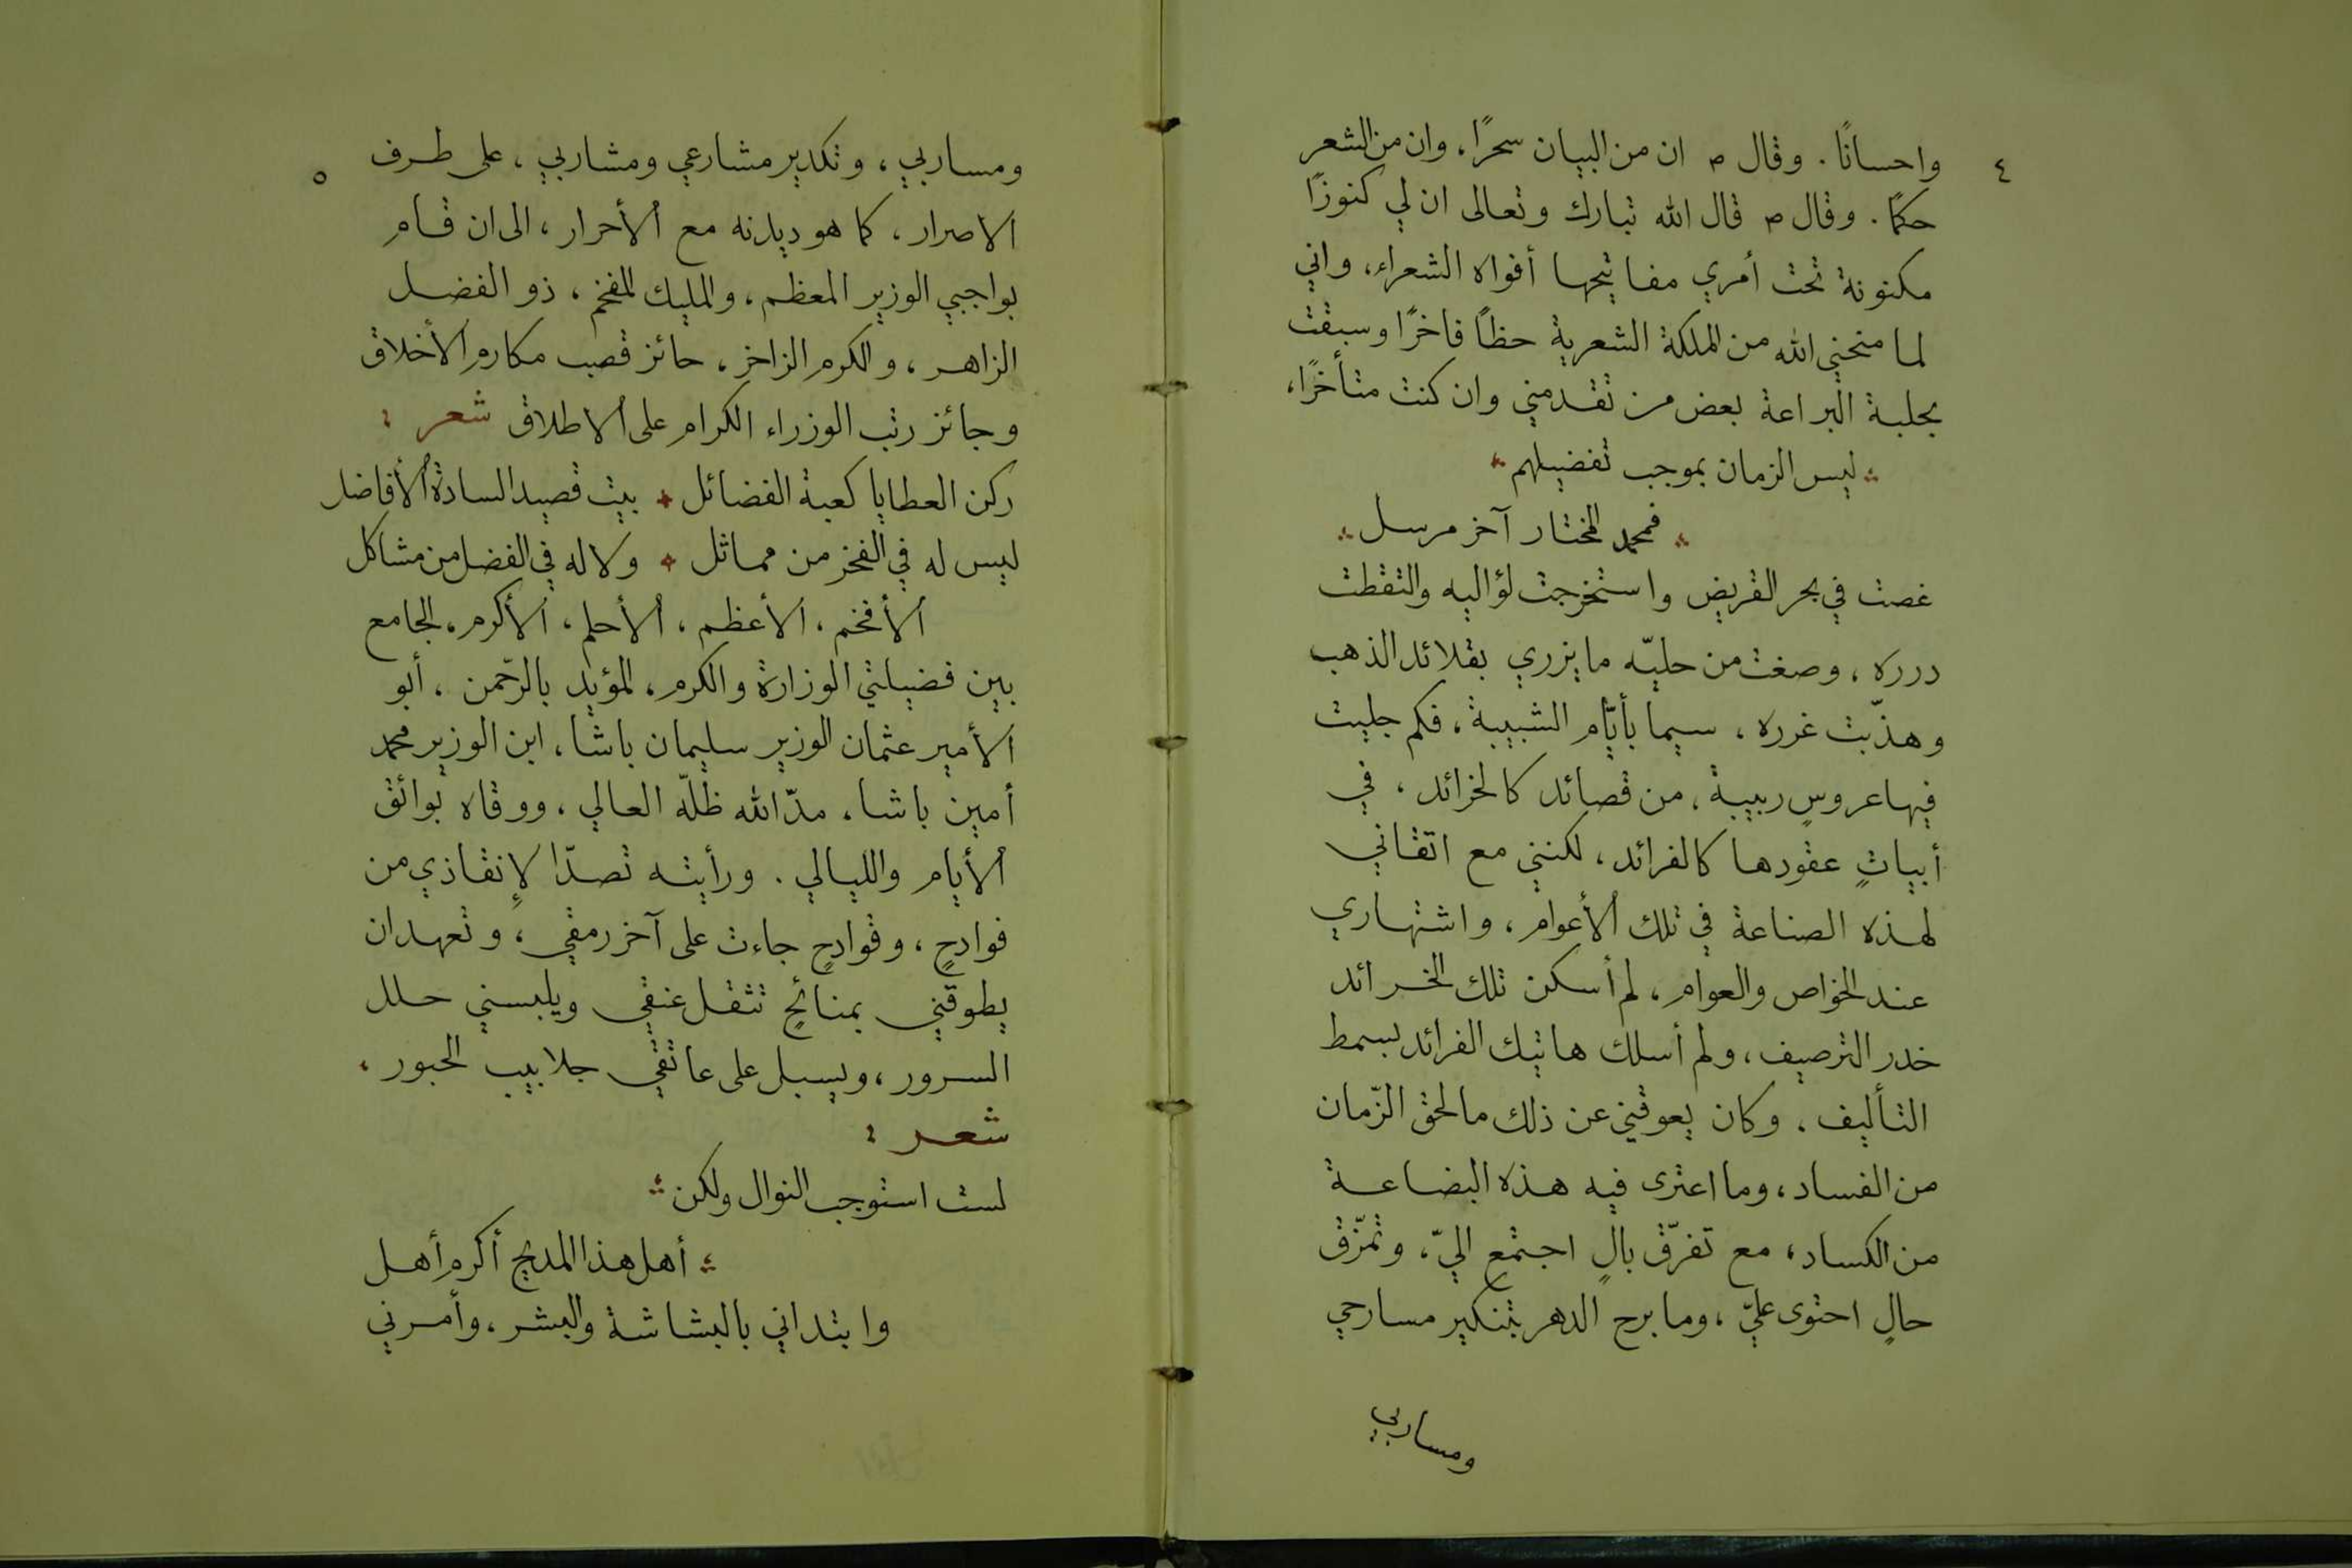 ٤
واحسانًا . وقال ص ان من البيان سحرًا ، وان من الشعر
حكمًا . وقال ص قال الله تبارك وتعالى ان لي كنوزًا
مكنونة تحت أمري مفاتيحها أفواه الشعراء ، واني
لما منحني الله من الملكة الشعرية حظاً فاخرًا وسبقت
بحلبة البراعة بعض من تقدمني وان كنت متأخرًا ،
ليس الزمان بموجب تفضيلهم
فمحمد المختار آخر مرسل
غصت في بحر القريض واستخرجت لؤاليه والتقطت
درره ، وصغت من حليّه ما يزري بقلائد الذهب
وهذّبت غرره ، سيما بأيّام الشبيبة ، فكم جليت
فيها عروسٍ ربيبة ، من قصائد كالخرائد ، في
أبياتٍ عقودها كالفرائد ، لكنني مع اتقاني
لهذه الصناعة في تلك الأعوام ، واشتهاري
عند الخواص والعوام ، لم أسكن تلك الخرائد
خدر الترصيف ، ولم أسلك هاتيك الفرائد بسمط
التأليف . وكان يعوقني عن ذلك ما لحق الزّمان
من الفساد ، وما اعترى فيه هذه البضاعة
من الكساد ، مع تفرّق بالٍ اجتمع اليّ ، وتمزّق
حالٍ احتوى عليّ ، وما برح الدهر بتنكير مسارحي
ومساربي
٥
ومساربي ، وتكدير مشارعي ومشاربي ، على طرف
الاصرار ، كما هو ديدنه مع الأحرار ، الى ان قام
بواجبي الوزير المعظم ، والمليك المفخم ، ذو الفضل
الزاهر ، والكرم الزاخر ، حائز قصب مكارم الأخلاق
وجائز رتب الوزراء الكرام على الاطلاق شعر :
ركن العطايا كعبة الفضائل * بيت قصيد السادة الأفاضل
ليس له في الفخر من مماثل * ولا له في الفضل من مشاكل
الأفخم ، الأعظم ، الأحلم ، الأكرم ، الجامع
بين فضيلتي الوزارة والكرم ، المؤيد بالرّحمن ، أبو
الأمير عثمان الوزير سليمان باشا ، ابن الوزير محمد
أمين باشا ، مدّ الله ظلّه العالي ، ووقاه بوائق
الأيام والليالي . ورأيته تصدّا لإنقاذي من
فوادحٍ ، وقوادحٍ جاءت على آخر رمقي ، وتعهد ان
يطوقني بمنائحٍ تثقل عنقي ويلبسني حلل
السرور ، ويسبل على عاتقي جلابيب الحبور ،
شعر :
لست استوجب النوال ولكن
أهل هذا المديح أكرم أهل
وابتداني بالبشاشة والبشر ، وأمرني